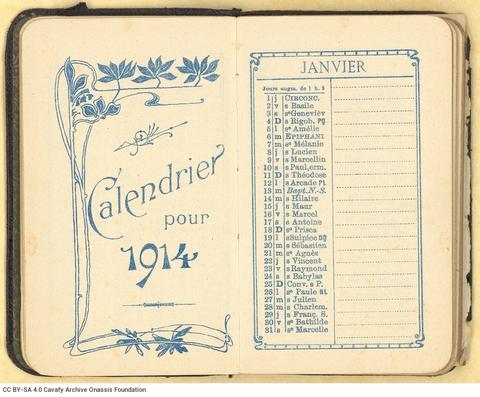 Calendrier
pour
1914
JANVIER
Jours augm. de 1 h. 3
1 j CIRCONC.
2 v s Basile
3 s sᵉ Genevièv
4 D s Rigob. PQ
5 l sᵉ Amélie
6 m EPIPHANI
7 m sᵉ Mélanie
8 j s Lucien
9 v s Marcellin
10 s s Paul, erm.
11 D s Théodose
12 l s Arcade PL
13 m Bapt. N.-S.
14 m s Hilaire
15 j s Maur
16 v s Marcel
17 s s Antoine
18 D sᵉ Prisca
19 l s Sulpice DQ
20 m s Sébastien
21 m sᵉ Agnès
22 j s Vincent
23 v s Raymond
24 s s Babylas
25 D Conv. s P.
26 l sᵉ Paule
27 m s Julien
28 m s Charlem.
29 j s Franç. S.
30 v sᵉ Bathilde
31 s sᵉ Marcelle
CC BY-SA 4.0 Cavafy Archive Onassis Foundation